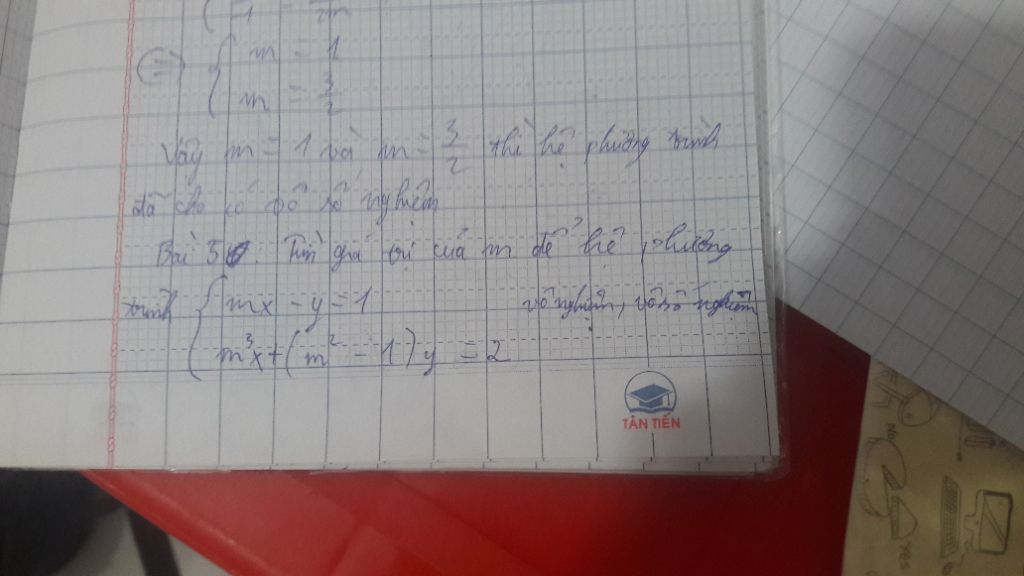 -1 = 2m
⇔ { m = 1
m = 3/2
Vậy m = 1 và m = 3/2 thì hệ phương trình
đã cho có vô số nghiệm
Bài 5: Tìm giá trị của m để hệ phương
trình { mx - y = 1 vô nghiệm, vô số nghiệm
m³x + (m² - 1)y = 2
TÂN TIẾN
No
YES